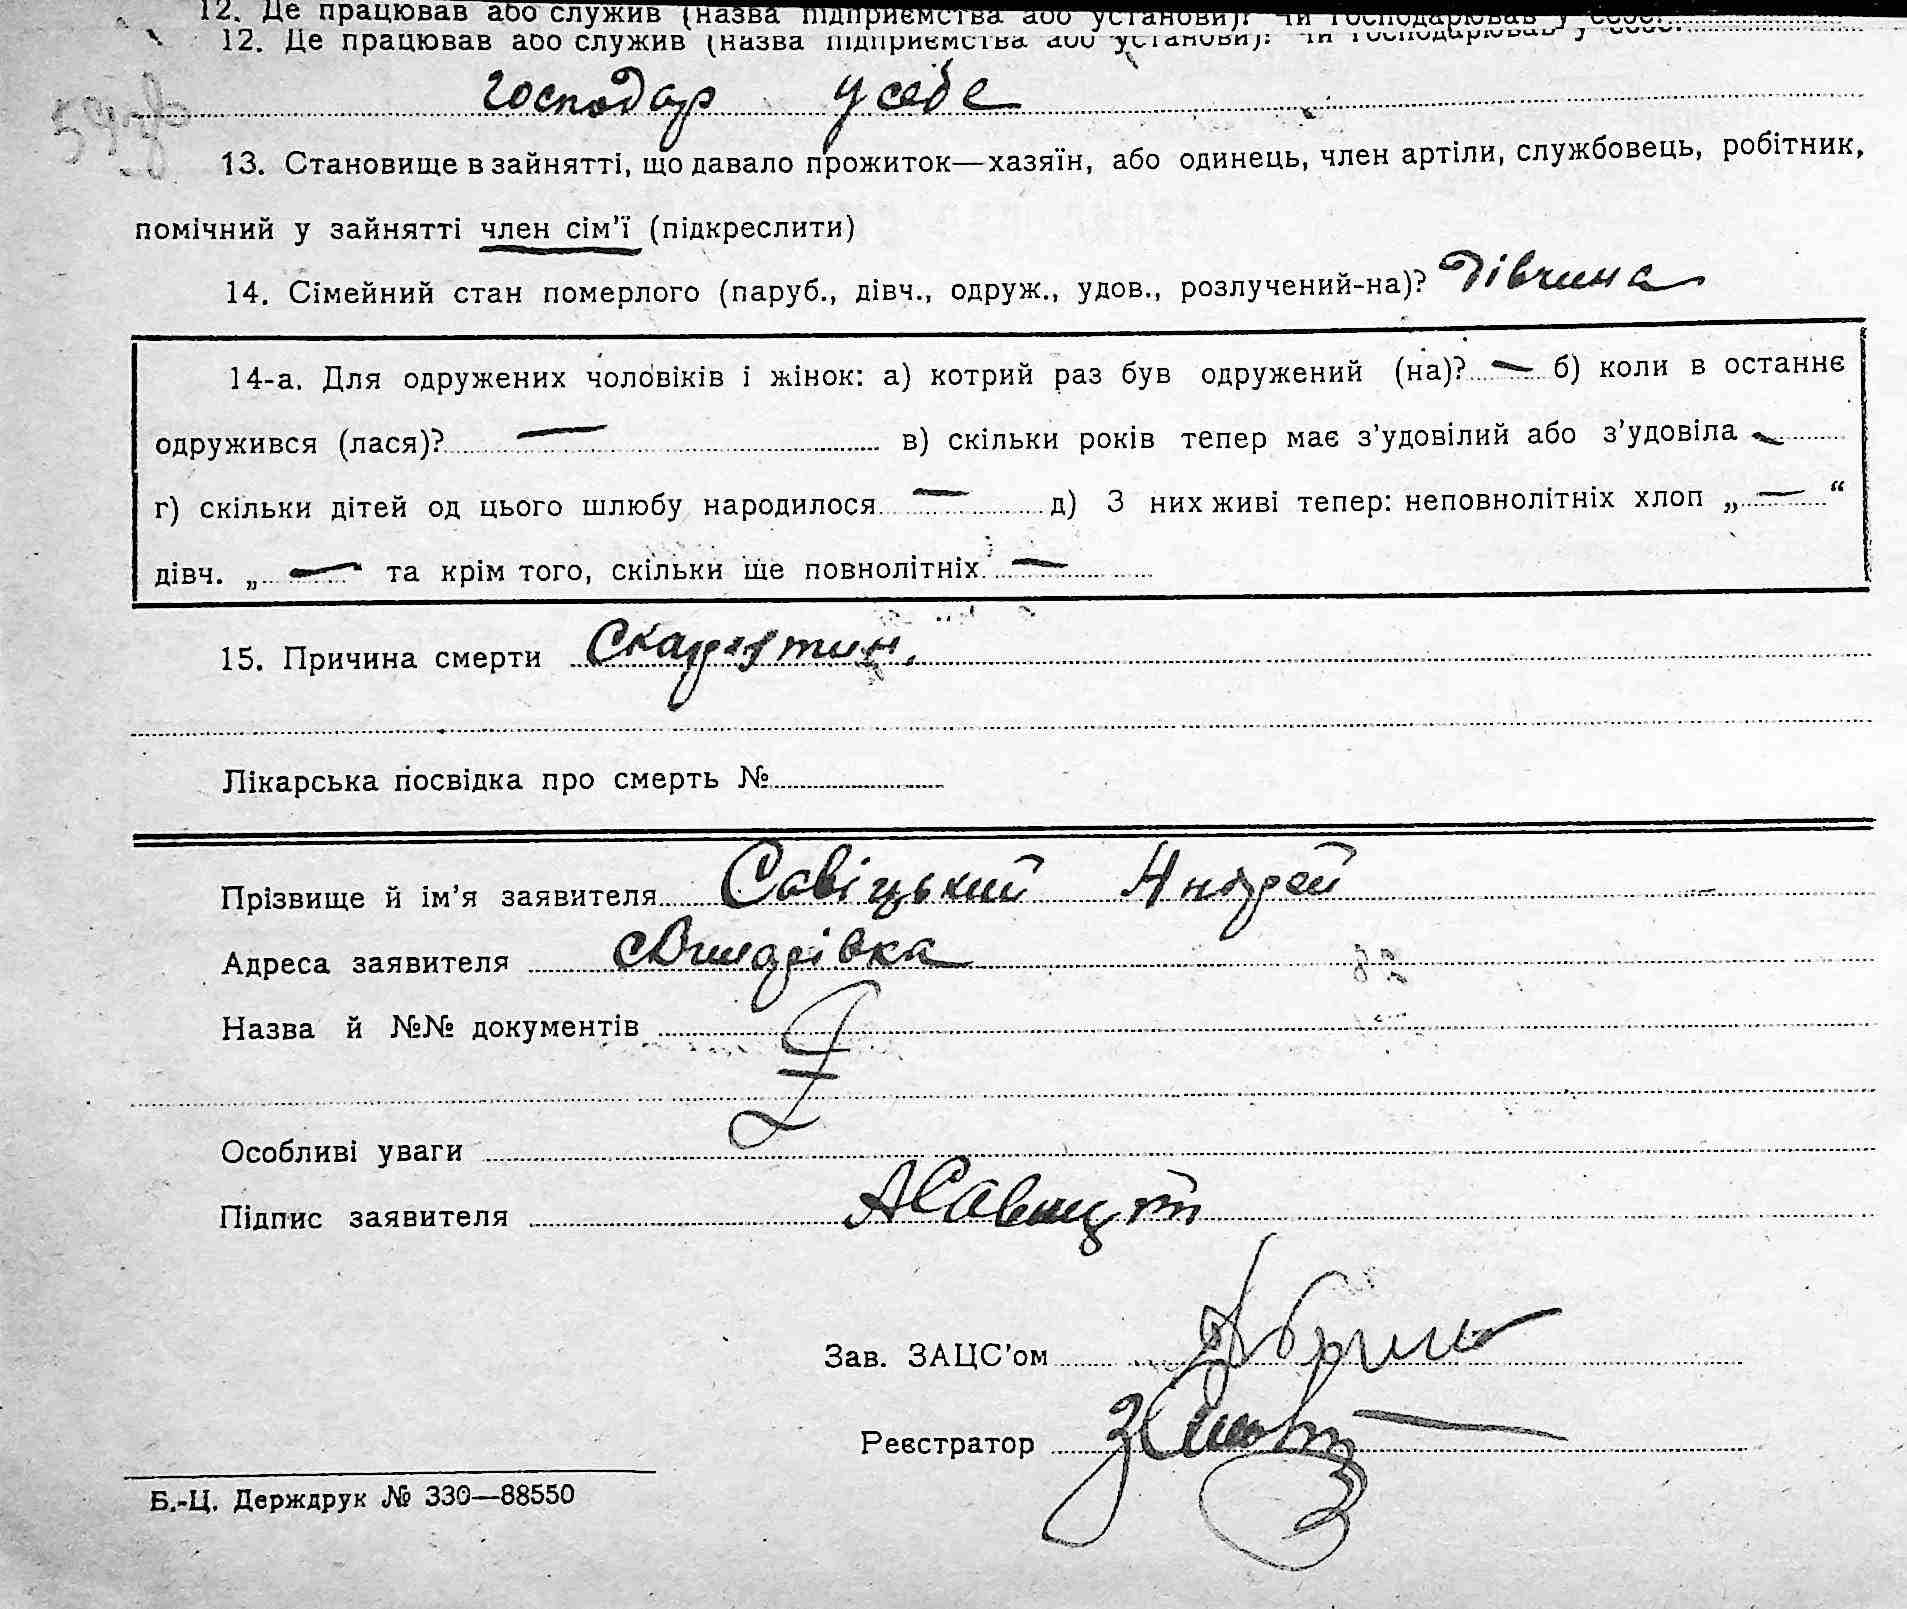 12. Де працював або служив (назва підприємства або установи)? Чи господарював у себе?
12. Де працював або служив (назва підприємства або установи)? Чи господарював у себе?
господар у себе
13. Становище в зайнятті, що давало прожиток—хазяїн, або одинець, член артіли, службовець, робітник,
помічний у зайнятті член сім'ї (підкреслити)
14. Сімейний стан померлого (паруб., дівч., одруж., удов., розлучений-на)? Дівчина
14-а. Для одружених чоловіків і жінок: а) котрий раз був одружений (на)? — б) коли в останнє
одружився (лася)? — в) скільки років тепер має з'удовілий або з'удовіла —
г) скільки дітей од цього шлюбу народилося — д) З них живі тепер: неповнолітніх хлоп „ — “
дівч. „ — " та крім того, скільки ще повнолітніх —
15. Причина смерти Скарлятин.
Лікарська посвідка про смерть №
Прізвище й ім'я заявителя Савіцький Андрей
Адреса заявителя
Назва й №№ документів
Особливі уваги
Підпис заявителя АСавицт
Зав. ЗАЦС'ом
Реєстратор
Б.-Ц. Держдрук № 330—88550